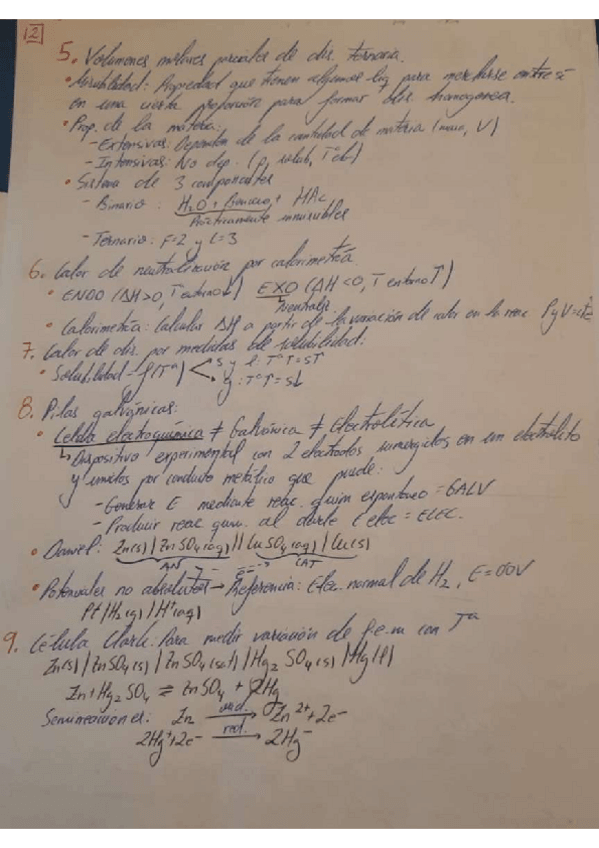 12
5. Volumenes molares parciales de dis. ternaria.
• Miscibilidad: Propiedad que tienen algunos liq para mezclarse entre sí
en una cierta proporción para formar dis. homogenea.
• Prop. de la materia:
- Extensivas: Dependen de la cantidad de materia (masa, V)
- Intensivas: No dep. (ρ, solub, Tª eb)
• Sistema de 3 componentes
- Binario: H₂O + Benceno + HAc
Prácticamente inmiscibles
- Ternario: F=2 y L=3
6. Calor de neutralización por calorimetría
• ENDO (ΔH>0, T entorno↓) EXO (ΔH<0, T entorno↑)
Neutraliz.
• Calorimetría: Calcular ΔH a partir de la variación de calor en la reac P y V = cte
7. Calor de dis. por medidas de solubilidad:
• Solubilidad = f(Tª) < s y l: Tª↑=s↑
g: Tª↑=s↓
8. Pilas galvánicas:
• Celda electroquímica ≠ Galvánica ≠ Electrolítica
↳ Dispositivo experimental con 2 electrodos, sumergidos en un electrolito
y unidos por conducto metálico que puede:
- Generar E mediante reac. quim espontaneo = GALV
- Producir reac quim. al darle E elec = ELEC.
• Daniel: Zn(s)|ZnSO₄(aq)||CuSO₄(aq)|Cu(s)
AN e⁻→ CAT
• Potenciales no absolutos → Referencia: Elec. normal de H₂, E=0'0V
Pt|H₂(g)|H⁺(aq)
9. Célula Clark: Para medir variación de f.e.m con Tª
Zn(s)|ZnSO₄(s)|ZnSO₄(sat)|Hg₂SO₄(s)|Hg(l)
Zn + Hg₂SO₄ ⇌ ZnSO₄ + 2Hg
Semireacciones: Zn oxd.→ Zn²⁺+2e⁻
2Hg⁺+2e⁻ red.→ 2Hg⁻